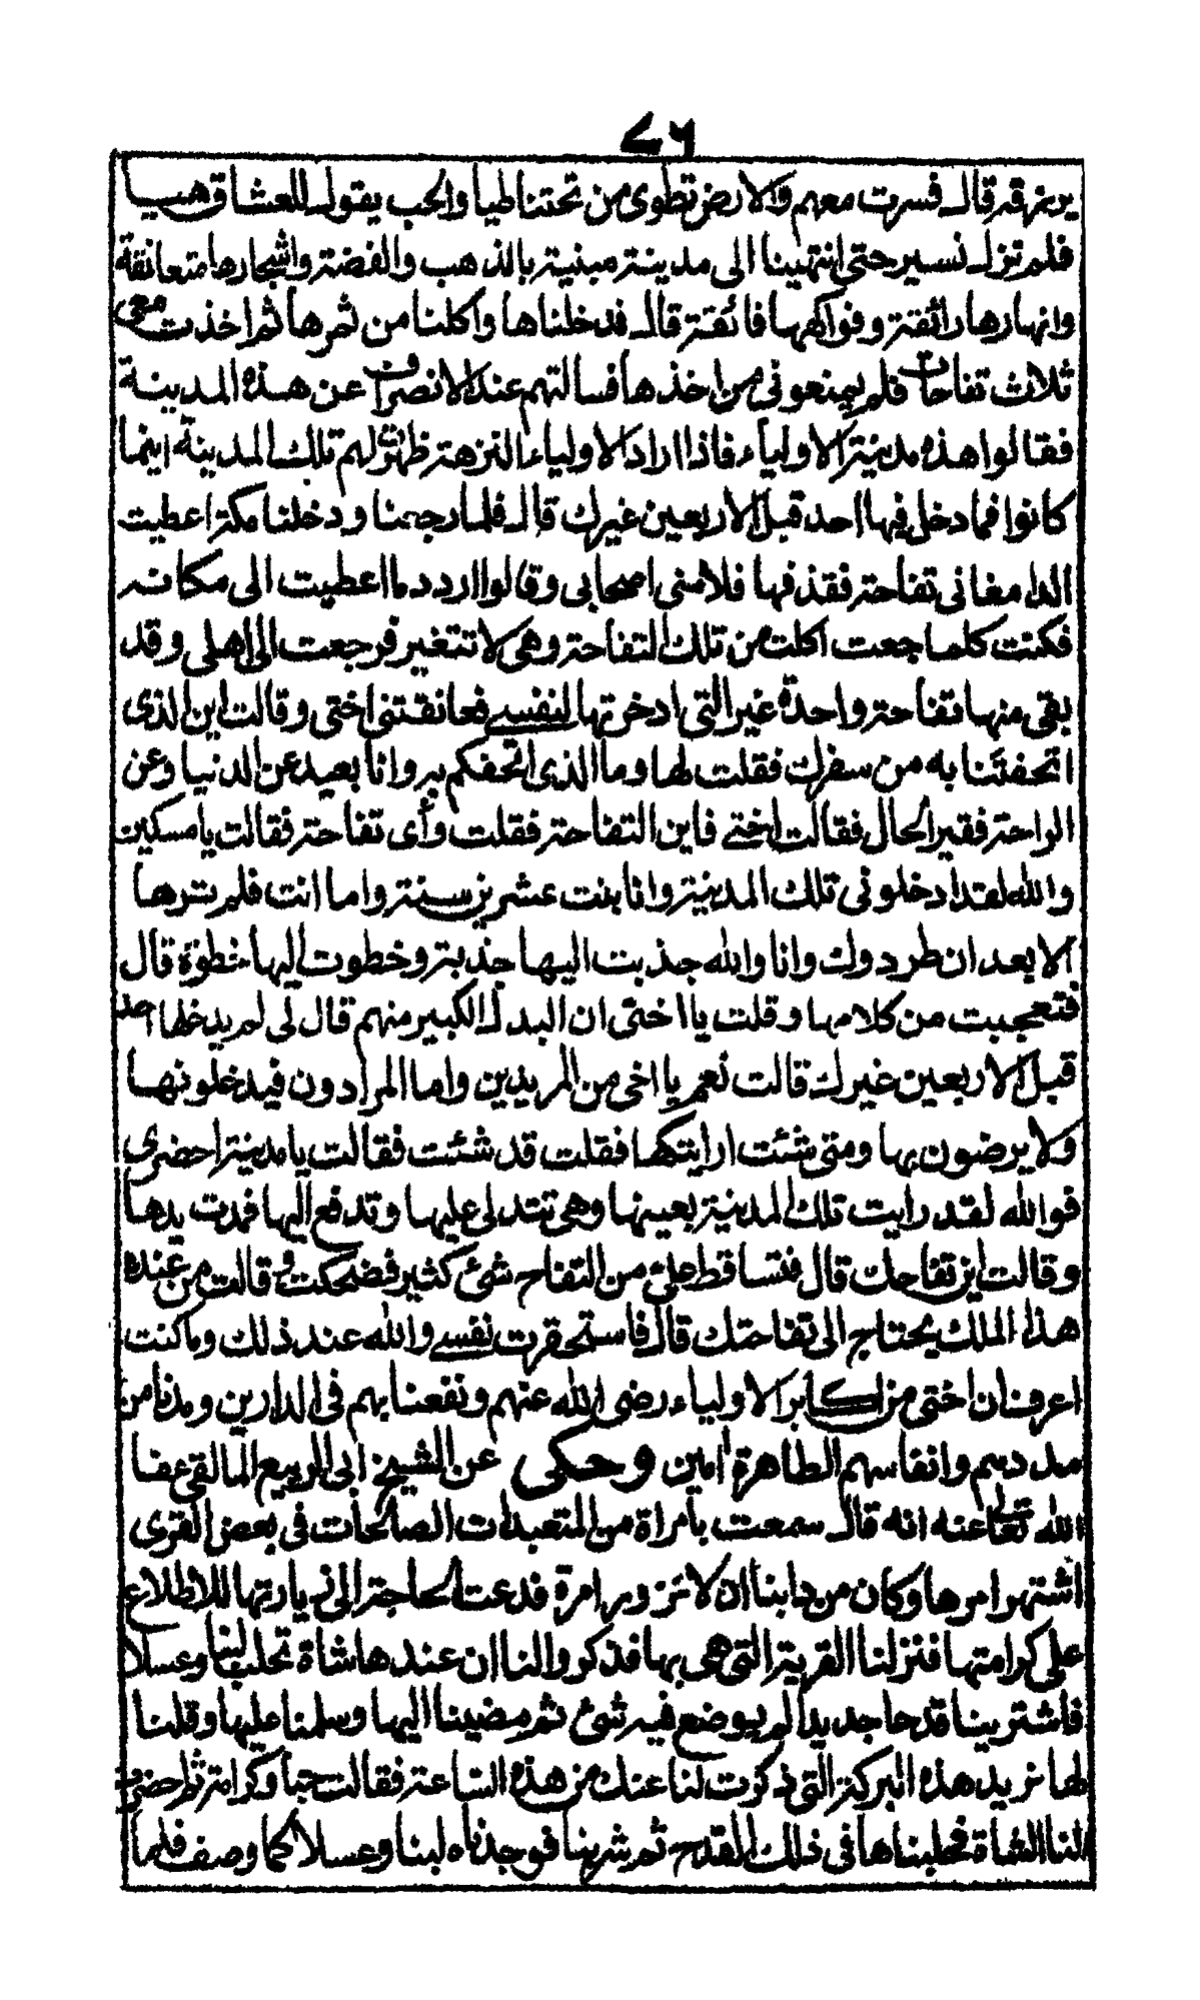 ٧٦
يرزقه قال فسرت معهم والارض تطوى من تحتنا طيا والحب يقول للعشاق هيا
فلم نزل نسير حتى انتهينا الى مدينة مبنية بالذهب والفضة واشجارها متعانقة
وانهارها رائقة وفواكهها فائقة قال فدخلناها واكلنا من ثمرها ثم اخذت معى
ثلاث تفاحات فلم يمنعونى من اخذها فسالتهم عند الانصراف عن هذه المدينة
فقالوا هذه مدينة الاولياء فاذا اراد الاولياء النزهة ظهرت لهم تلك المدينة اينما
كانوا فما دخل فيها احد قبل الاربعين غيرك قال فلما رجعنا ودخلنا مكة اعطيت
الدامغانى تفاحة فقذفها فلامنى اصحابى وقالوا اردد ما اعطيت الى مكانه
فكنت كلما جعت اكلت من تلك التفاحة وهى لا تتغير فرجعت الى اهلى وقد
بقى منها تفاحة واحدة غير التى ادخرتها لنفسى فعانقتنى اختى وقالت اين الذى
اتحفتنا به من سفرك فقلت لها وما الذى اتحفكم به وانا بعيد عن الدنيا وعن
الراحة فقير الحال فقالت اختى فاين التفاحة فقلت وأى تفاحة فقالت يا مسكين
والله لقد ادخلونى تلك المدينة وانا بنت عشرين سنة واما انت فلم ترها
الا بعد ان طردوك وانا والله جذبت اليها جذبة وخطوت اليها خطوة قال
فتعجبت من كلامها وقلت يا اختى ان البدل الكبير منهم قال لى لم يدخلها احد
قبل الاربعين غيرك قالت نعم يا اخى من المريدين واما المرادون فيدخلونها
ولا يرضون بها ومتى شئت اريتكها فقلت قد شئت فقالت يا مدينة احضرى
فوالله لقد رايت تلك المدينة بعينها وهى تتدلى عليها وتدفع اليها فمدت يدها
وقالت اين تفاحك قال فتساقط على من التفاح شئ كثير فضحكت وقالت من عنده
هذا الملك يحتاج الى تفاحتك قال فاستحقرت نفسى والله عند ذلك وما كنت
اعرف ان اختى من اكابر الاولياء رضى الله عنهم ونفعنا بهم فى الدارين ومدنا من
مددهم وانفاسهم الطاهرة امين وحكى عن الشيخ ابى الربيع المالقى عفا
الله تعالى عنه انه قال سمعت بامراة من المتعبدات الصالحات فى بعض القرى
اشتهر امرها وكان من دابنا ان لا نزور امرة فدعت الحاجة الى زيارتها للاطلاع
على كرامتها فنزلنا القرية التى هى بها فذكروا لنا ان عندها شاة تحلب لبنا وعسلا
فاشترينا قدحا جديدا لم يوضع فيه شئ ثم مضينا اليها وسلمنا عليها وقلنا
لها نريد هذه البركة التى ذكرت لنا عنك من هذه الساعة فقالت حبا وكرامة ثم احضرت
لنا الشاة فحلبناها فى ذلك القدح ثم شربنا فوجدناه لبنا وعسلا كما وصف فلما